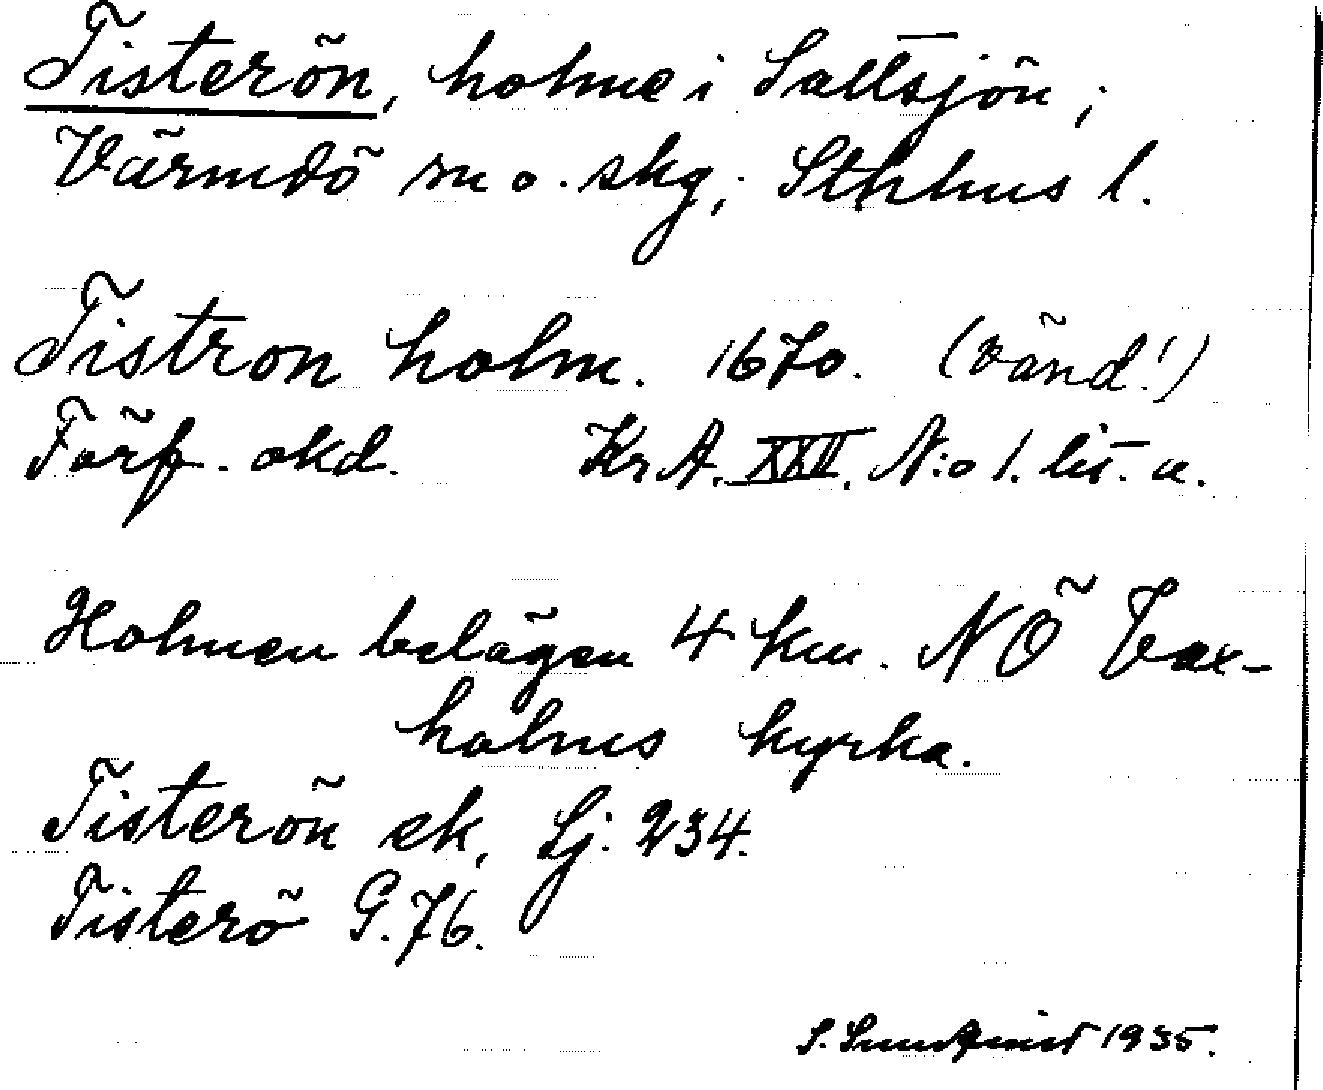 Tisterön, holme i Saltsjön;
Värmdö sn o. skg; Sthlms l.
Tistron holm. 1670. (vänd!)
Förf. okd. Kr A. XXII. N:o 1. lit. a.
Holmen belägen 4 km. NÖ Vax-
holms kyrka.
Tisterön ek, Lj. 234.
Tisterö G. 76.
S. Sundqvist 1935.